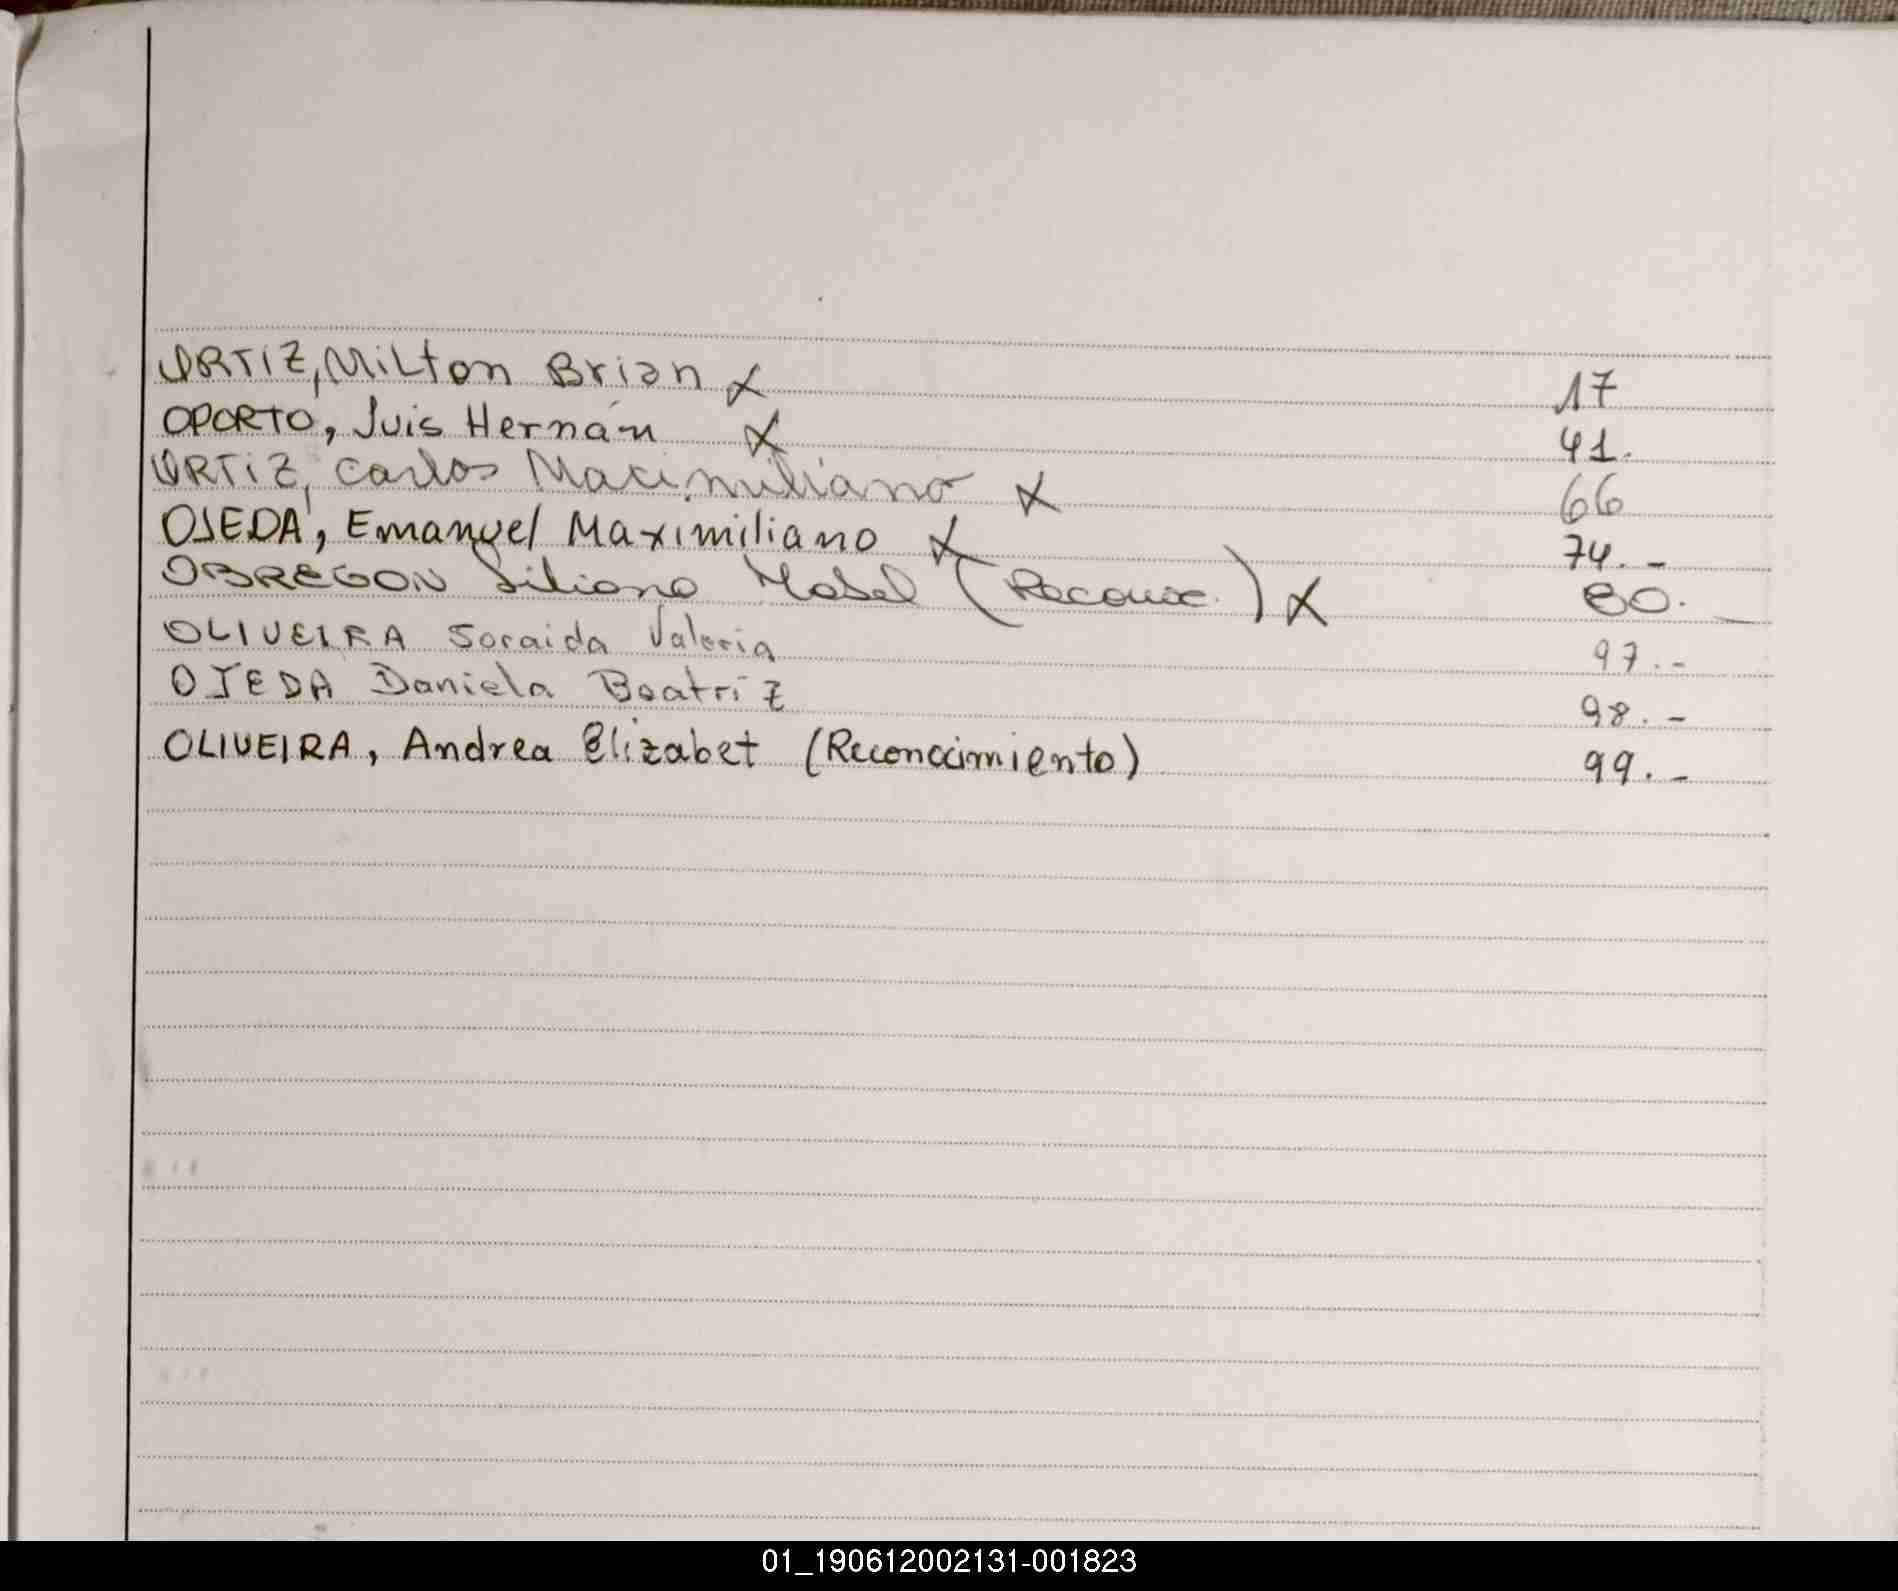 ORTIZ, Milton Brian X 17
OPORTO, Luis Hernán X 41.
ORTIZ, Carlos Maximiliano X 66
OJEDA, Emanuel Maximiliano X 74.-
OBREGON Liliana Mabel (Reconoc.) X 80.-
OLIVEIRA Soraida Valeria 97.-
OJEDA Daniela Beatriz 98.-
OLIVEIRA, Andrea Elizabet (Reconocimiento) 99.-
01_190612002131-001823